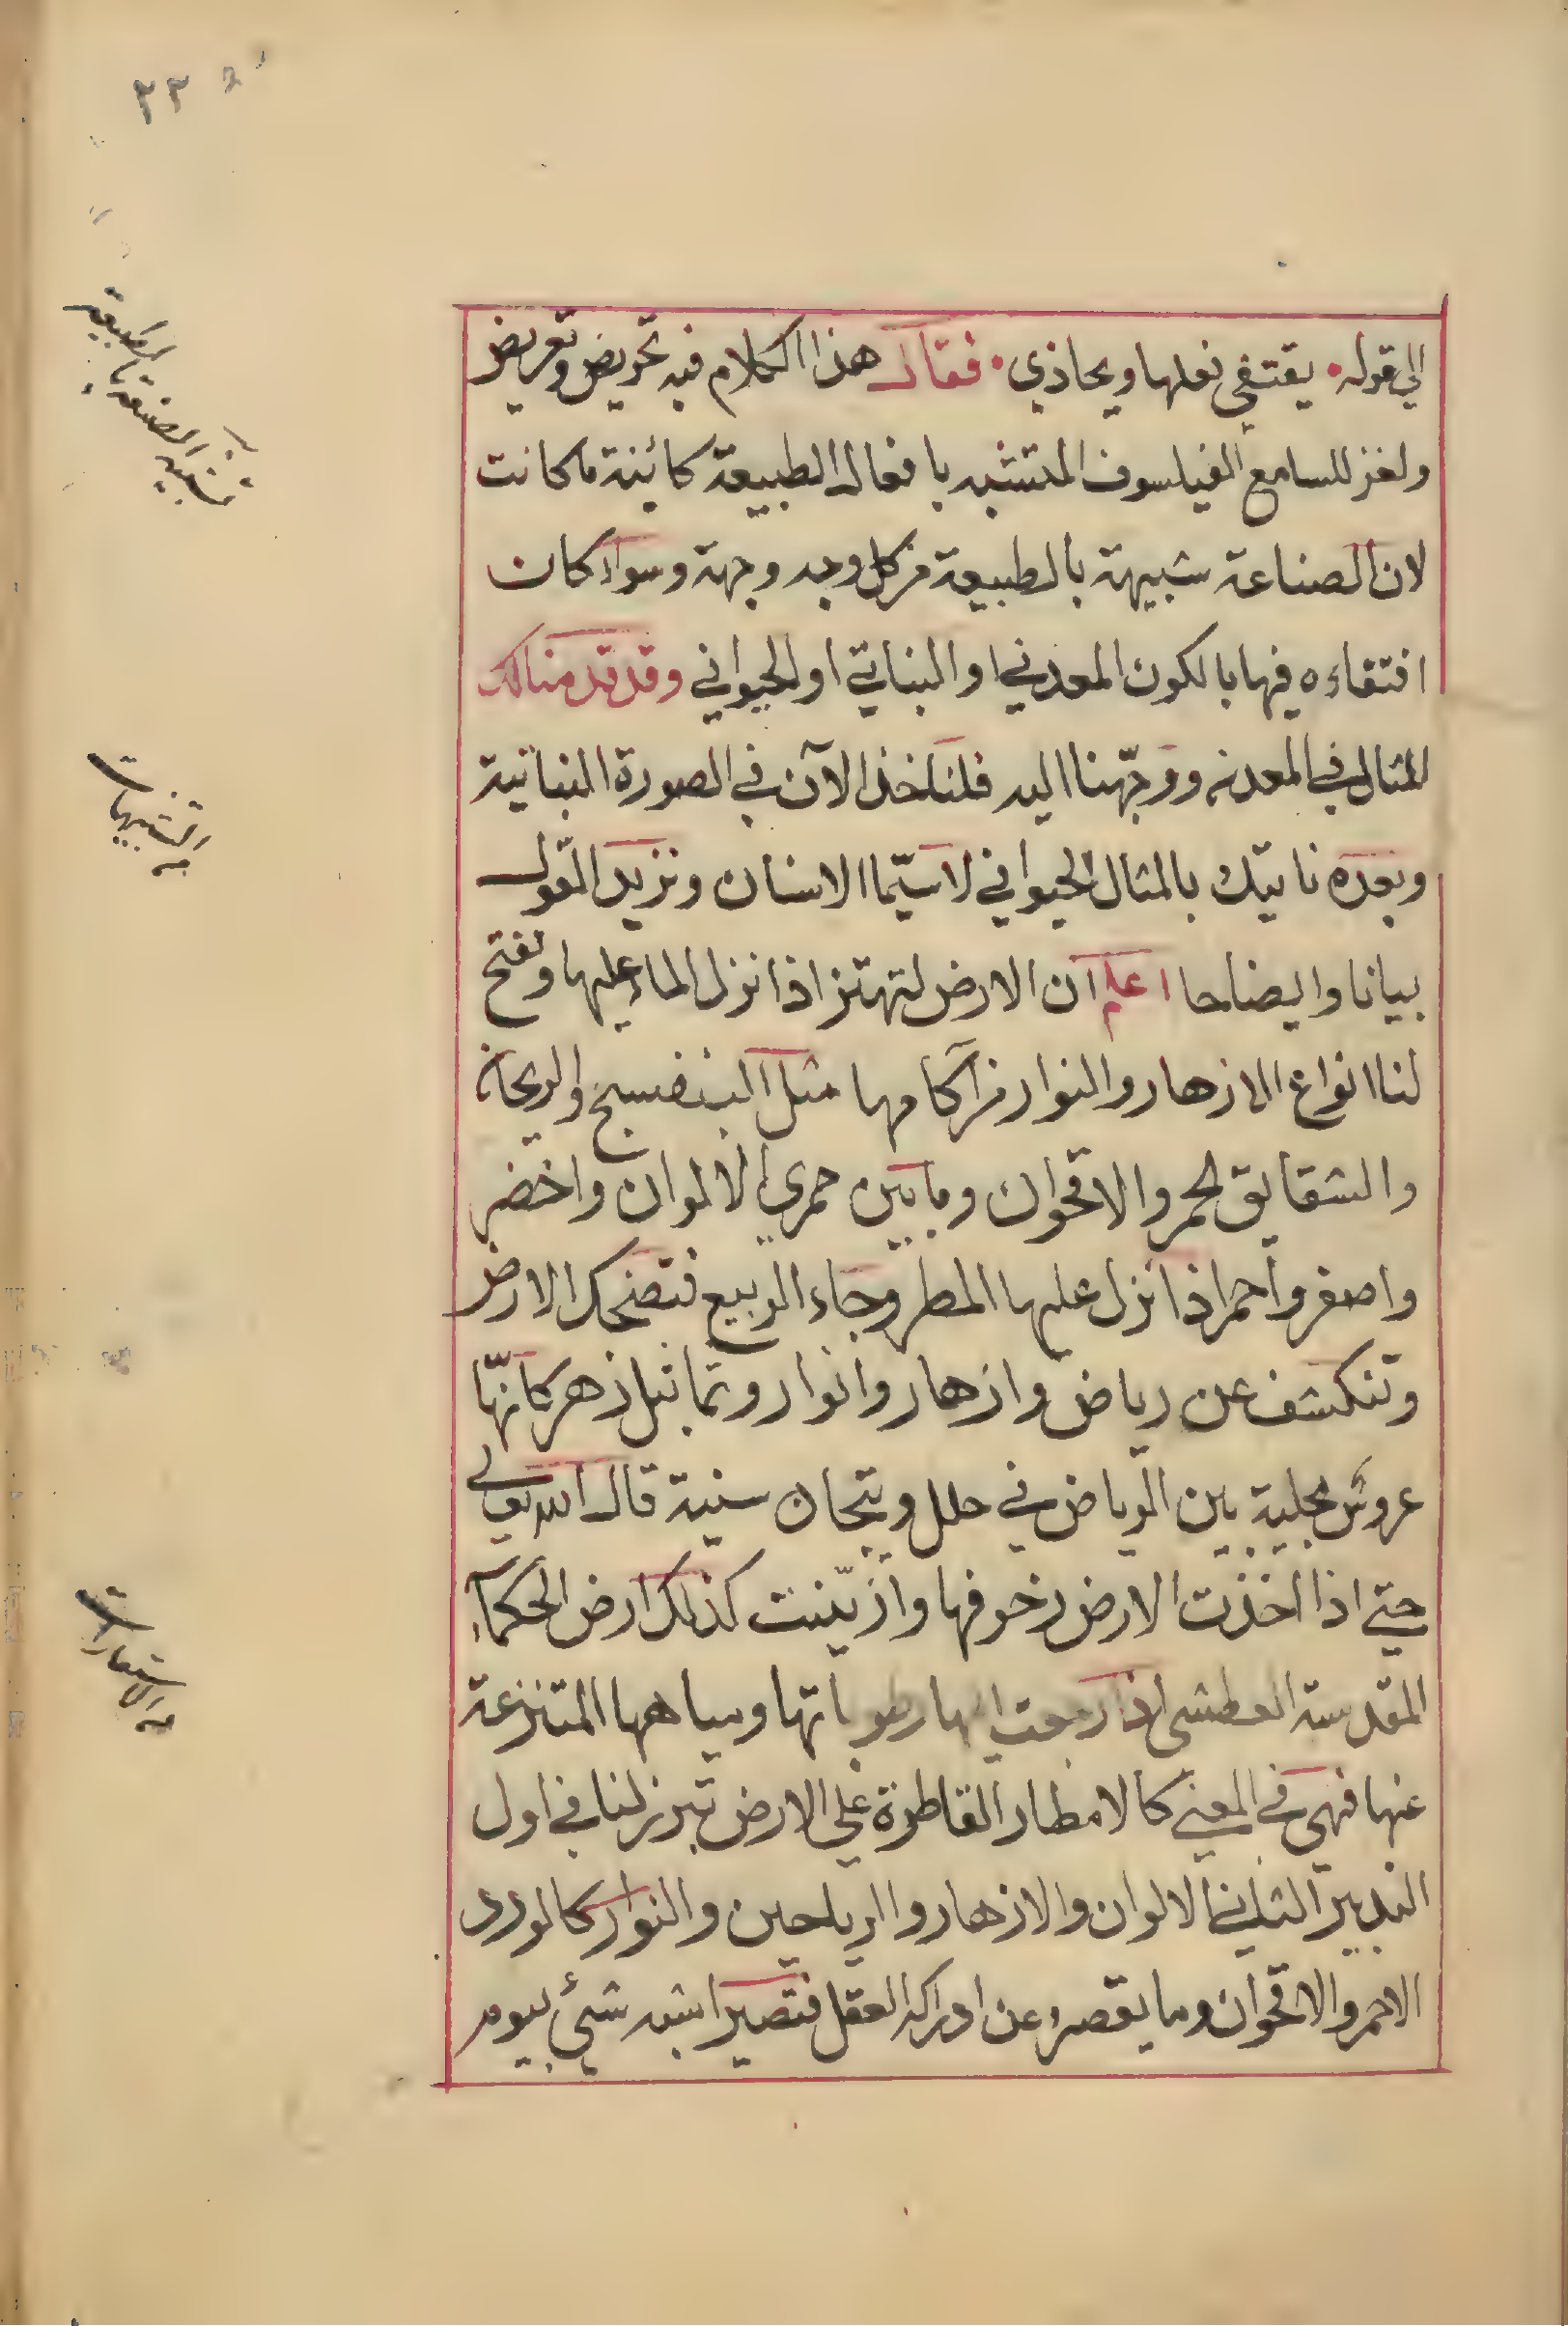 ٣٣
الي قوله يقتفي فعلها ويحاذي فقال هذا الكلام فيه تحريض وتعريض
ولغز للسامع الفيلسوف المتشبه بافعال الطبيعة كائنة ما كانت
لان الصناعة شبيهة بالطبيعة من كل وجه وجهة وسواء كان
افتقاءه فيها بالكون المعدني او النباتي او الحيواني وقد قدمنا لك
المثال في المعدن ووجّهنا اليه فلناخذ الآن في الصورة النباتية
وبعده ناتيك بالمثال الحيواني لاسيّما الانسان ونزيد القول
بيانا وايضاحا اعلم ان الارض لتهتز اذا نزل الماء عليها وتفتح
لنا انواع الازهار والنوار من آكامها مثل البنفسج والريحان
والشقايق لحمر والاقحوان وما بين حمري الالوان واخضر
واصفر واحمر اذا نزل عليها المطر وجاء الربيع فتضحك الارض
وتنكشف عن رياض وازهار وانوار وتماثيل زهر كانهّا
عروس مجلية بين الرياض في حلل وتيجان سنية قال الله تعالي
حتي اذا اخذت الارض زخرفها وازيّنت كذلك ارض الحكمآء
المقدسة العطشى اذا رجعت اليها رطوباتها ومياهها المتنزعة
عنها فهي في المعنى كالامطار القاطرة علي الارض تبرز لنا في اول
التدبير الثاني الالوان والازهار والرياحين والنوار كالورد
الاحمر والاقحوان وما يقصر عن ادراكه العقل فتصير اشبه شيء بيوم
تشبيه الصنعة بالطبيعة
من التشبيهات
من الاستعارات